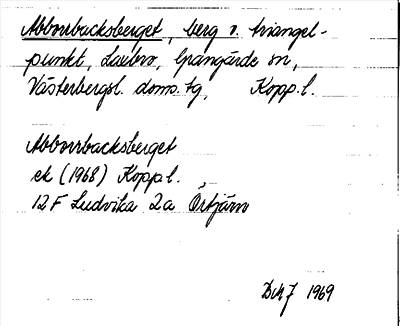 Abborrbacksberget, berg o. triangel-
punkt, Laxbro, Grangärde sn,
Västerbergsl. doms. tg, Kopp. l.
Abborrbacksberget
ek (1968) Kopp l.
12F Ludvika 2a Örtjärn
1969